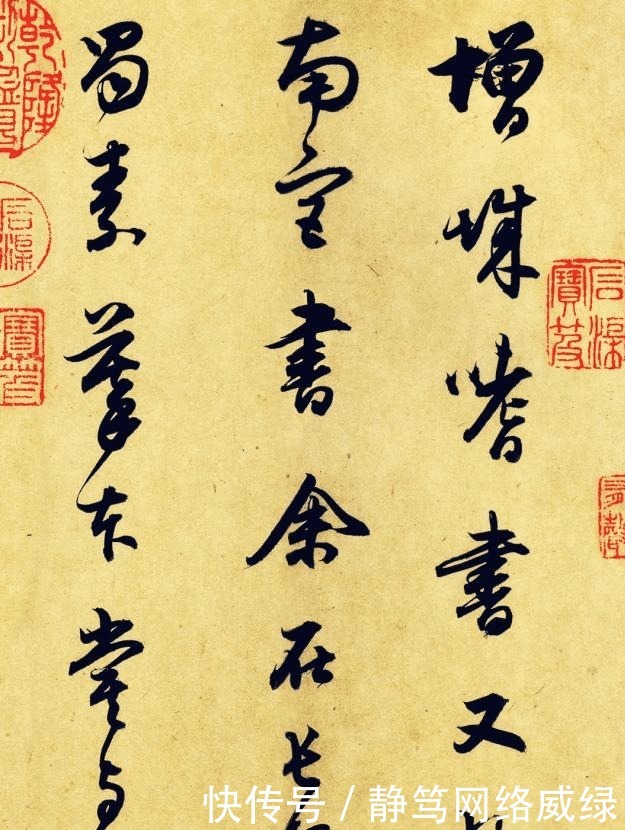 增城嗜書又
南宮書余在長
蜀素摹本嘗与
乾隆
石渠
寶笈
石渠寶笈
快传号 / 静笃网络威绿